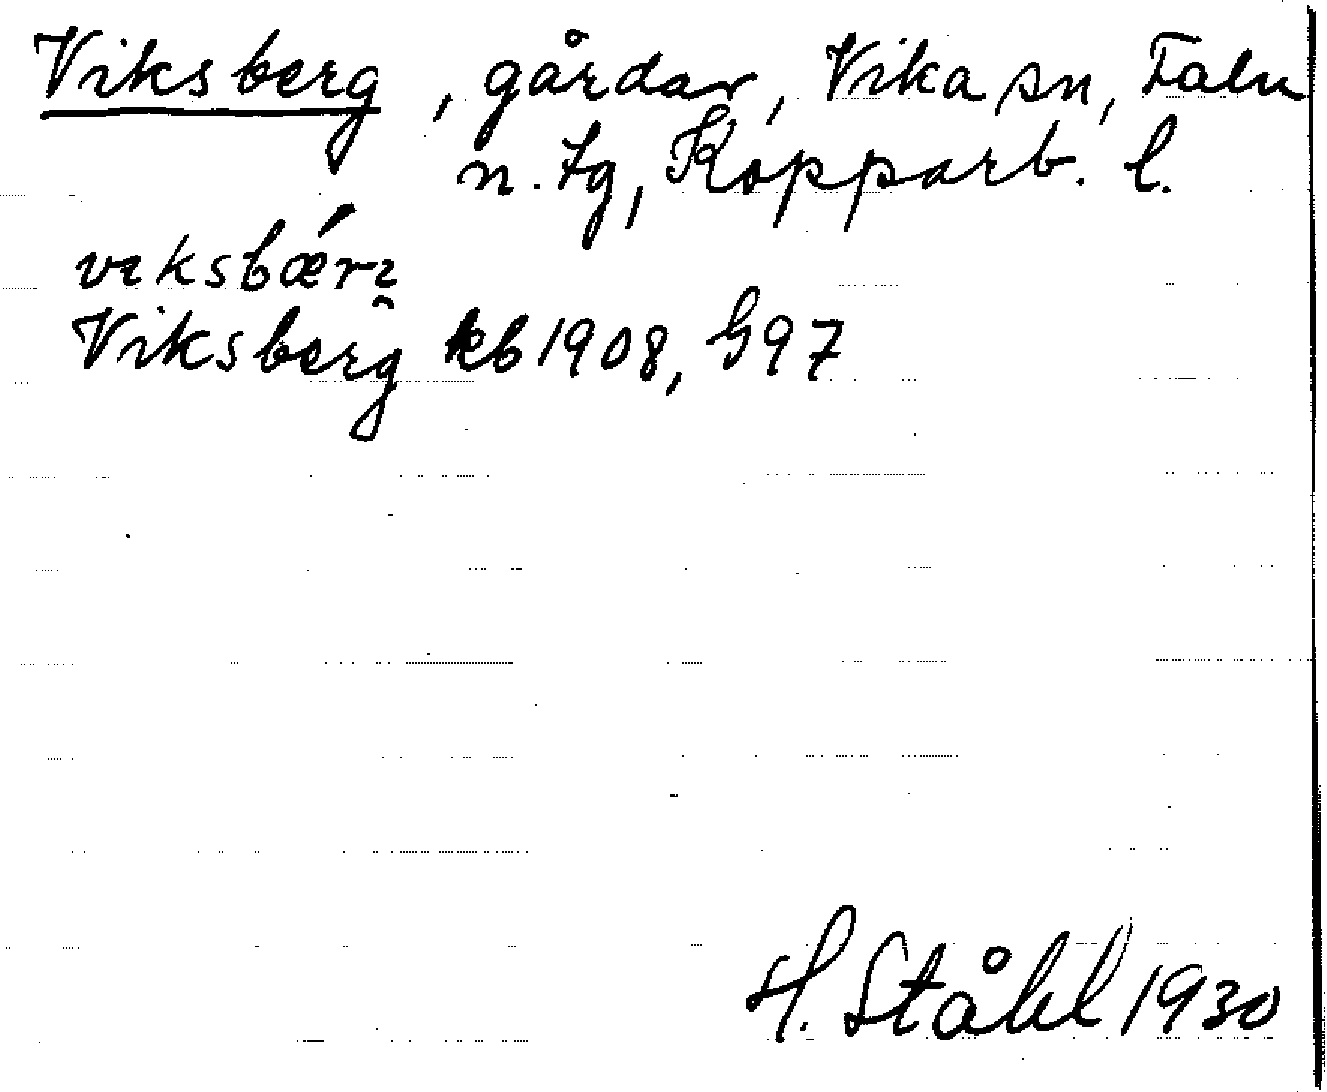 Viksberg, gårdar, Vika sn, Falu
n. tg, Kopparb. l.
viksbǽrı̯
Viksberg kb 1908, G97
H. Ståhl 1930